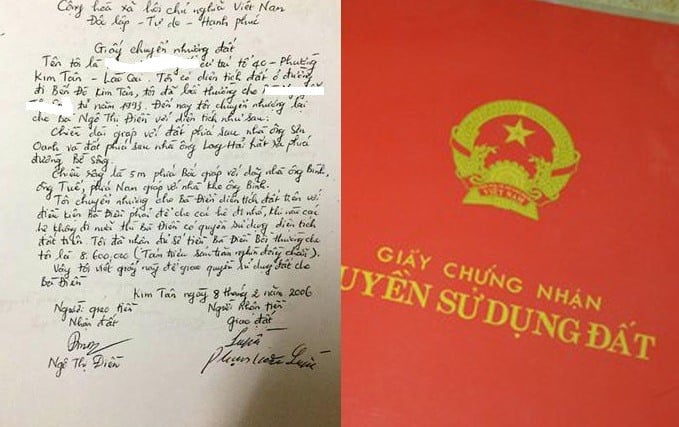 Cộng hòa xã hội chủ nghĩa Việt Nam
Độc lập - Tự do - Hạnh phúc
Giấy chuyển nhượng đất
Tên tôi là cư trú tổ 40 - Phường
Kim Tân - Lào Cai. Tôi có diện tích đất ở đường
đi Bến Đá Kim Tân, tôi đã bồi thường cho
từ năm 1993. Đến nay tôi chuyển nhượng lại
cho Bà Ngô Thị Điền với diện tích như sau:
Chiều dài giáp với đất phía sau nhà ông Sơn
Oanh và đất phía sau nhà ông Long Hải hắt ra phía
đường Bờ Sông.
Chiều rộng là 5m phía Bắc giáp với dãy nhà ông Bính,
ông Tuế, phía Nam giáp với nhà kho ông Bính.
Tôi chuyển nhượng cho Bà Điền diện tích đất trên với
điều kiện Bà Điền phải để cho các hộ đi nhờ, khi nào các
hộ không đi nữa thì Bà Điền có quyền sử dụng diện tích
đất trên. Tôi đã nhận đủ số tiền Bà Điền Bồi thường cho
tôi là 8.600.000 (Tám triệu sáu trăm nghìn đồng chẵn).
Vậy tôi viết giấy này để giao quyền sử dụng đất cho
Bà Điền
Kim Tân ngày 8 tháng 2 năm 2006
Người giao tiền
Nhận đất
Ngô Thị Điền
Người Nhận tiền
giao đất
GIẤY CHỨNG NHẬN
UYỀN SỬ DỤNG ĐẤT